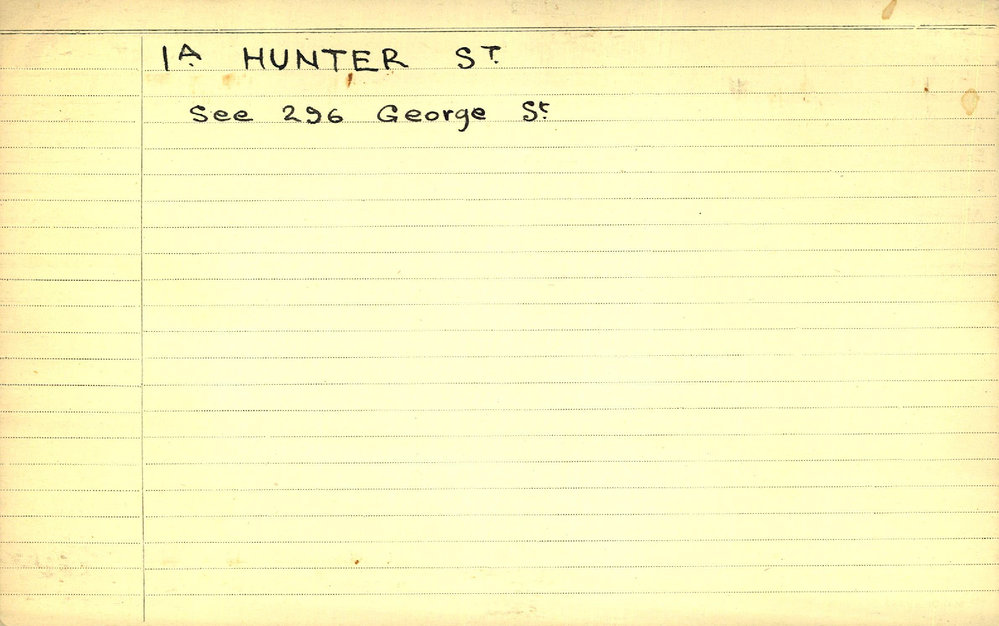 1A HUNTER ST.
See 296 George St.